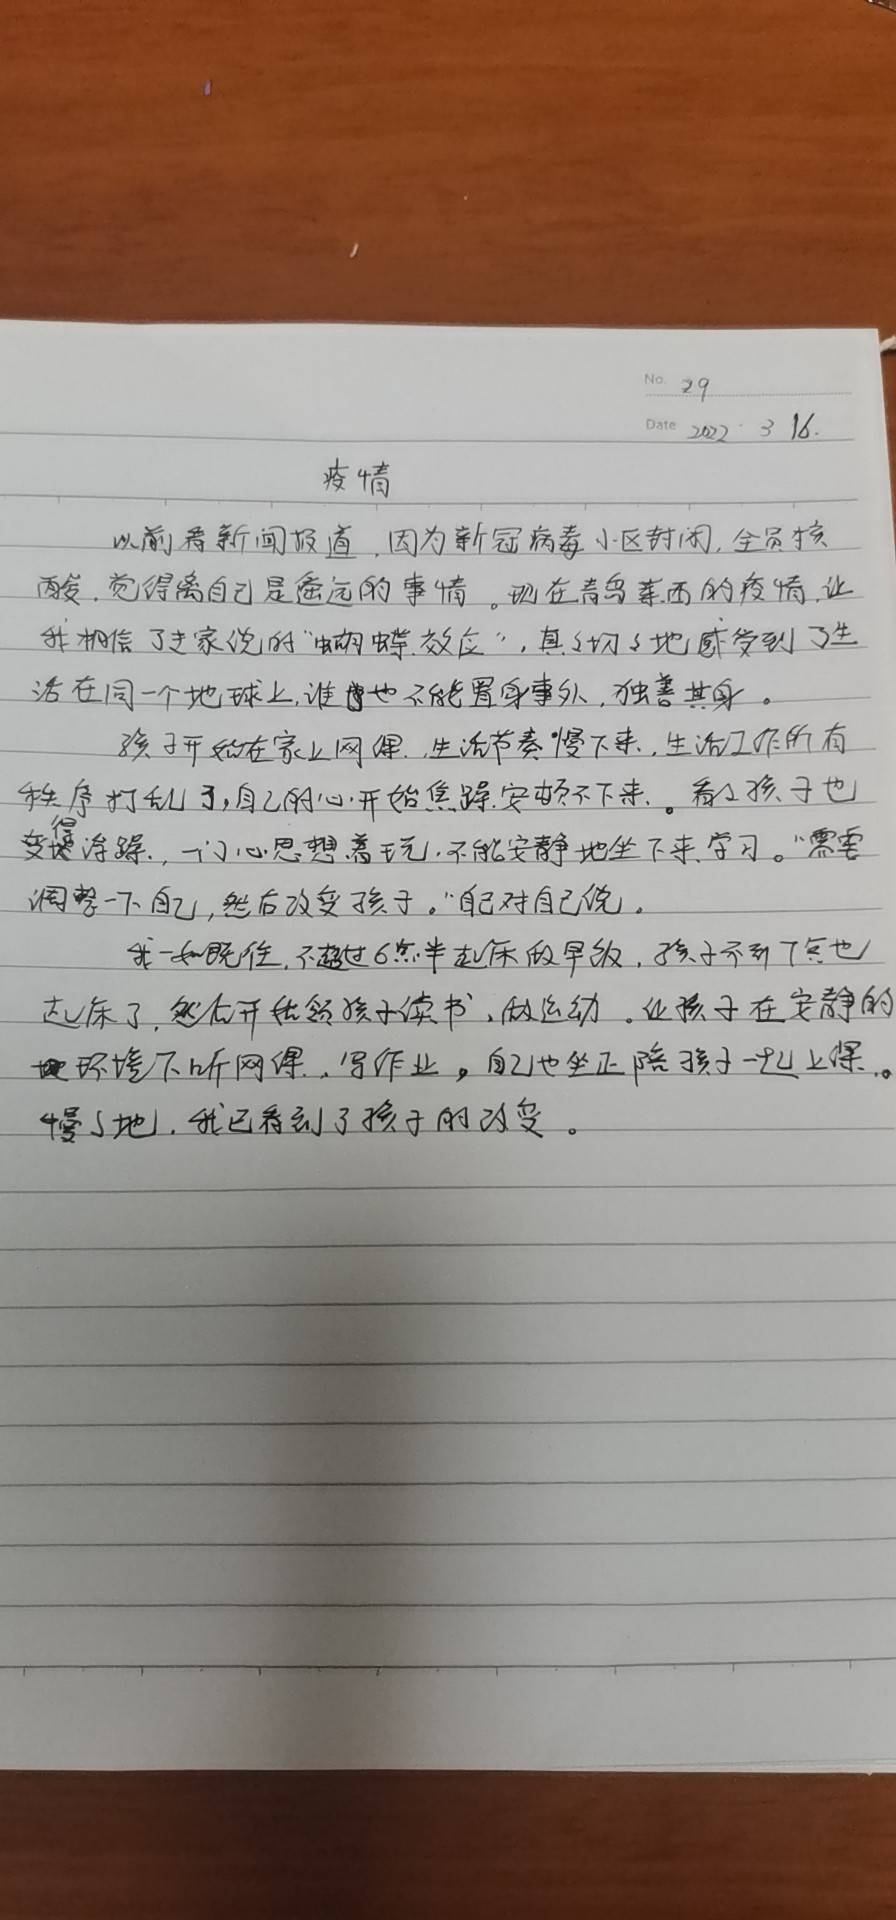 No. 29
Date 2022 3 16.
疫情
以前看新闻报道,因为新冠病毒小区封闭,全员核
酸,觉得离自己是遥远的事情。现在青岛莱西的疫情,让
我相信了专家说的"蝴蝶效应",真真切切地感受到了生
活在同一个地球上,谁也不能置身事外,独善其身。
孩子开始在家上网课,生活节奏慢下来,生活工作所有
秩序打乱了,自己的心开始焦躁安顿不下来。看看孩子也
变得浮躁,一门心思想着玩,不能安静地坐下来学习。"需要
调整一下自己,然后改变孩子。"自己对自己说。
我一如既往,不超过6点半起床做早饭,孩子不到7点也
起床了,然后开始领孩子读书、做运动。让孩子在安静的
环境下听网课,写作业。自己也坐正陪孩子一起上课。
慢慢地,我已看到了孩子的改变。